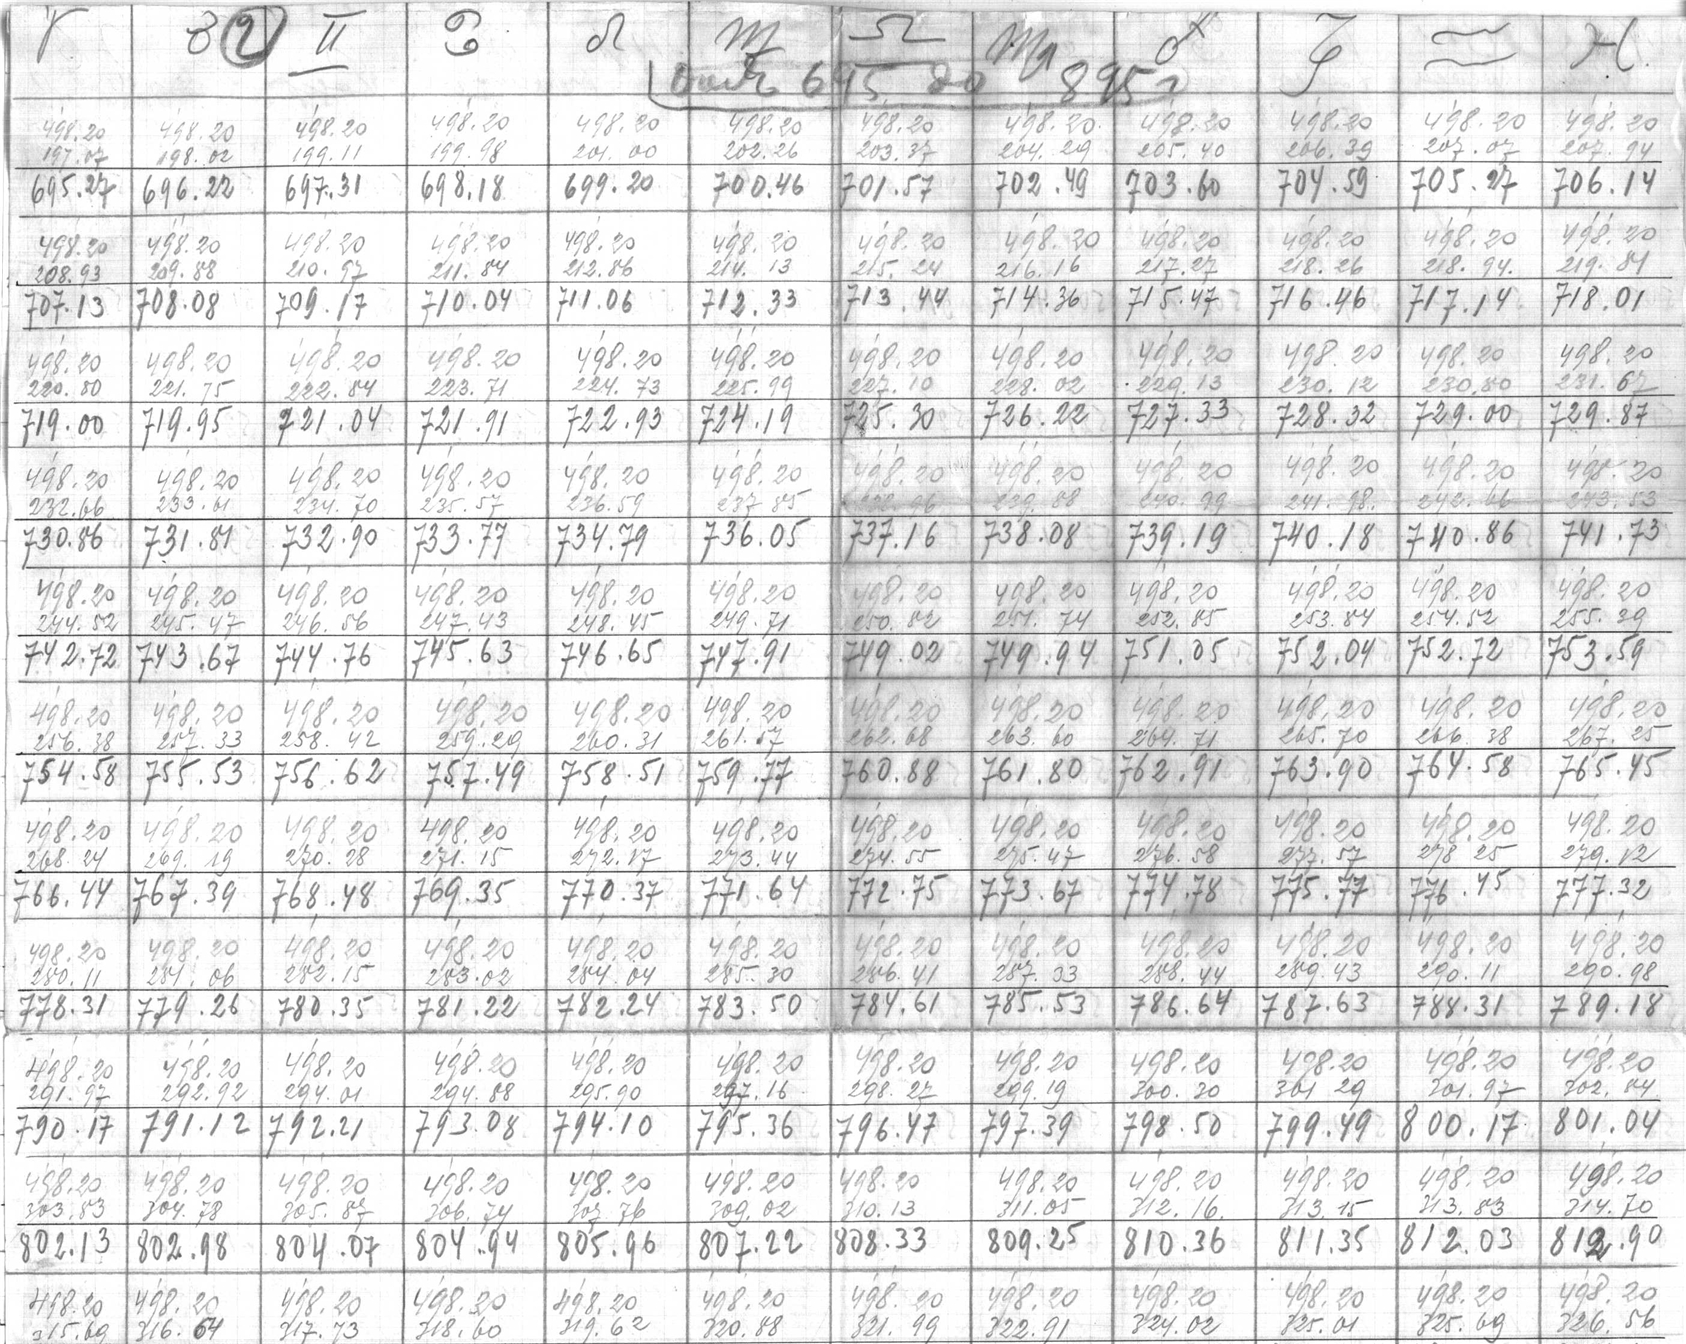 ♈ ♉ ② ♊ ♋ ♌ ♍ ♎ ♏ ♐ ♑ ♒ ♓
695 до 895 г
498.20 498.20 498.20 498.20 498.20 498.20 498.20 498.20 498.20 498.20 498.20 498.20
197.07 198.02 199.11 199.98 201.00 202.26 203.37 204.29 205.40 206.39 207.07 207.94
695.27 696.22 697.31 698.18 699.20 700.46 701.57 702.49 703.60 704.59 705.27 706.14
498.20 498.20 498.20 498.20 498.20 498.20 498.20 498.20 498.20 498.20 498.20 498.20
208.93 209.88 210.97 211.84 212.86 214.13 215.24 216.16 217.27 218.26 218.94. 219.81
707.13 708.08 709.17 710.04 711.06 712.33 713.44 714.36 715.47 716.46 717.14 718.01
498.20 498.20 498.20 498.20 498.20 498.20 498.20 498.20 498.20 498.20 498.20 498.20
220.80 221.75 222.84 223.71 224.73 225.99 227.10 228.02 229.13 230.12 230.80 231.67
719.00 719.95 721.04 721.91 722.93 724.19 725.30 726.22 727.33 728.32 729.00 729.87
498.20 498.20 498.20 498.20 498.20 498.20 498.20 498.20 498.20 498.20 498.20 498.20
232.66 233.61 234.70 235.57 236.59 237.85 238.96 239.88 240.99 241.98. 242.66 243.53
730.86 731.81 732.90 733.77 734.79 736.05 737.16 738.08 739.19 740.18 740.86 741.73
498.20 498.20 498.20 498.20 498.20 498.20 498.20 498.20 498.20 498.20 498.20 498.20
244.52 245.47 246.56 247.43 248.45 249.71 250.82 251.74 252.85 253.84 254.52 255.39
742.72 743.67 744.76 745.63 746.65 747.91 749.02 749.94 751.05 752.04 752.72 753.59
498.20 498.20 498.20 498.20 498.20 498.20 498.20 498.20 498.20 498.20 498.20 498.20
256.38 257.33 258.42 259.29 260.31 261.57 262.68 263.60 264.71 265.70 266.38 267.25
754.58 755.53 756.62 757.49 758.51 759.77 760.88 761.80 762.91 763.90 764.58 765.45
498.20 498.20 498.20 498.20 498.20 498.20 498.20 498.20 498.20 498.20 498.20 498.20
268.24 269.19 270.28 271.15 272.17 273.44 274.55 275.47 276.58 277.57 278 25 279.12
766.44 767.39 768.48 769.35 770.37 771.64 772.75 773.67 774.78 775.77 776.45 777.32
498.20 498.20 498.20 498.20 498.20 498.20 498.20 498.20 498.20 498.20 498.20 498.20
280.11 281.06 282.15 283.02 284.04 285.30 286.41 287.33 288.44 289.43 290.11 290.98
778.31 779.26 780.35 781.22 782.24 783.50 784.61 785.53 786.64 787.63 788.31 789.18
498.20 498.20 498.20 498.20 498.20 498.20 498.20 498.20 498.20 498.20 498.20 498.20
291.97 292.92 294.01 294.88 295.90 297.16 298.27 299.19 300.30 301 29 301.97 302.84
790.17 791.12 792.21 793.08 794.10 795.36 796.47 797.39 798.50 799.49 800.17 801.04
498.20 498.20 498.20 498.20 498.20 498.20 498.20 498.20 498.20 498.20 498.20 498.20
303.83 304.78 305.87 306.74 307.76 309.02 310.13 311.05 312.16. 313.15 313.83 314.70
802.13 802.98 804.07 804.94 805.96 807.22 808.33 809.25 810.36 811.35 812.03 812.90
498.20 498.20 498.20 498.20 498.20 498.20 498.20 498.20 498.20 498.20 498.20 498.20
315.69 316.64 317.73 318.60 319.62 320.88 321.99 322.91 324.02 325.01 325.69 326.56